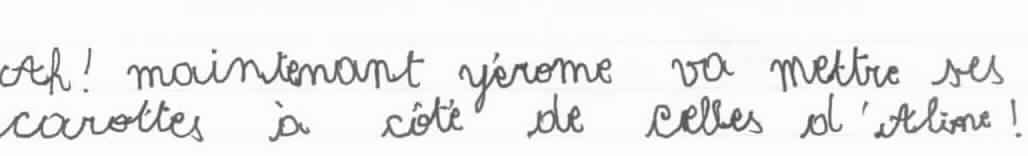 Ah! maintenant yérome va mettre ses
carottes à côté de celles d'Aline!